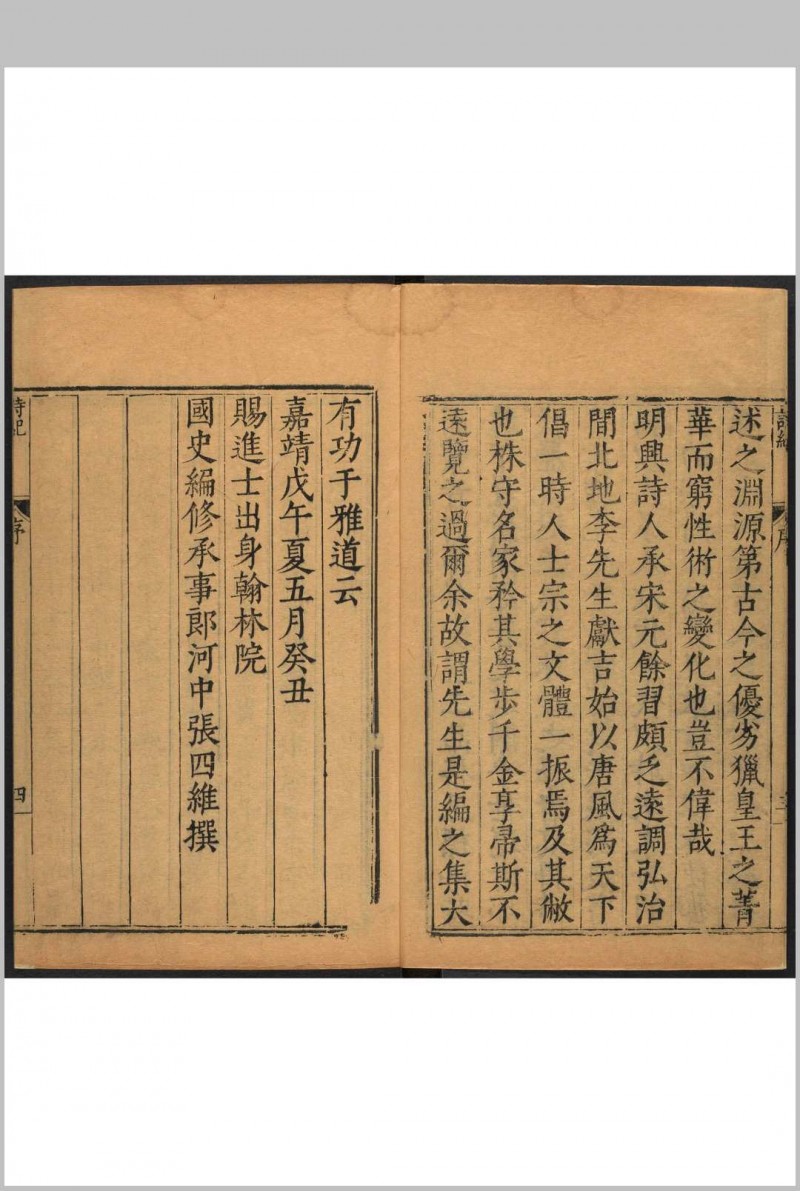 述之淵源第古今之優劣獵皇王之菁
華而窮性術之變化也豈不偉哉
明興詩人承宋元餘習頗乏遠調弘治
間北地李先生獻吉始以唐風爲天下
倡一時人士宗之文體一振焉及其敝
也株守名家矜其學步千金享帚斯不
遠覽之過爾余故謂先生是編之集大
有功于雅道云
嘉靖戊午夏五月癸丑
賜進士出身翰林院
國史編修承事郎河中張四維撰
詩紀
序
四